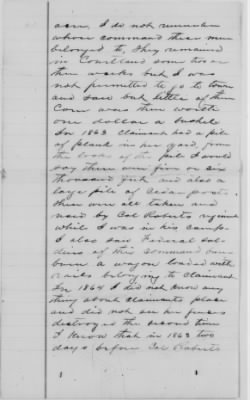 acre, I do not remember
whose command these men
belonged to. They remained
in Courtland some two or
three weeks but I was
not permitted to go to town
and saw but little of them
Corn was then worth
one dollar a bushel
In 1863 claimant had a pile
of plank in her yard, from
the looks of the pile I would
say there were five or six
thousand feet and also a
large pile of cedar posts.
these were all taken and
used by Col Roberts regiment
while I was in his camp.
I also saw Federal sol-
diers of this command
burn a wagon loaded with
rails belonging to Claimant
In 1864 I did not know any
thing about claimants place
and did not see her fences
destroyed the second time
I know that in 1863 two
days before Col Roberts